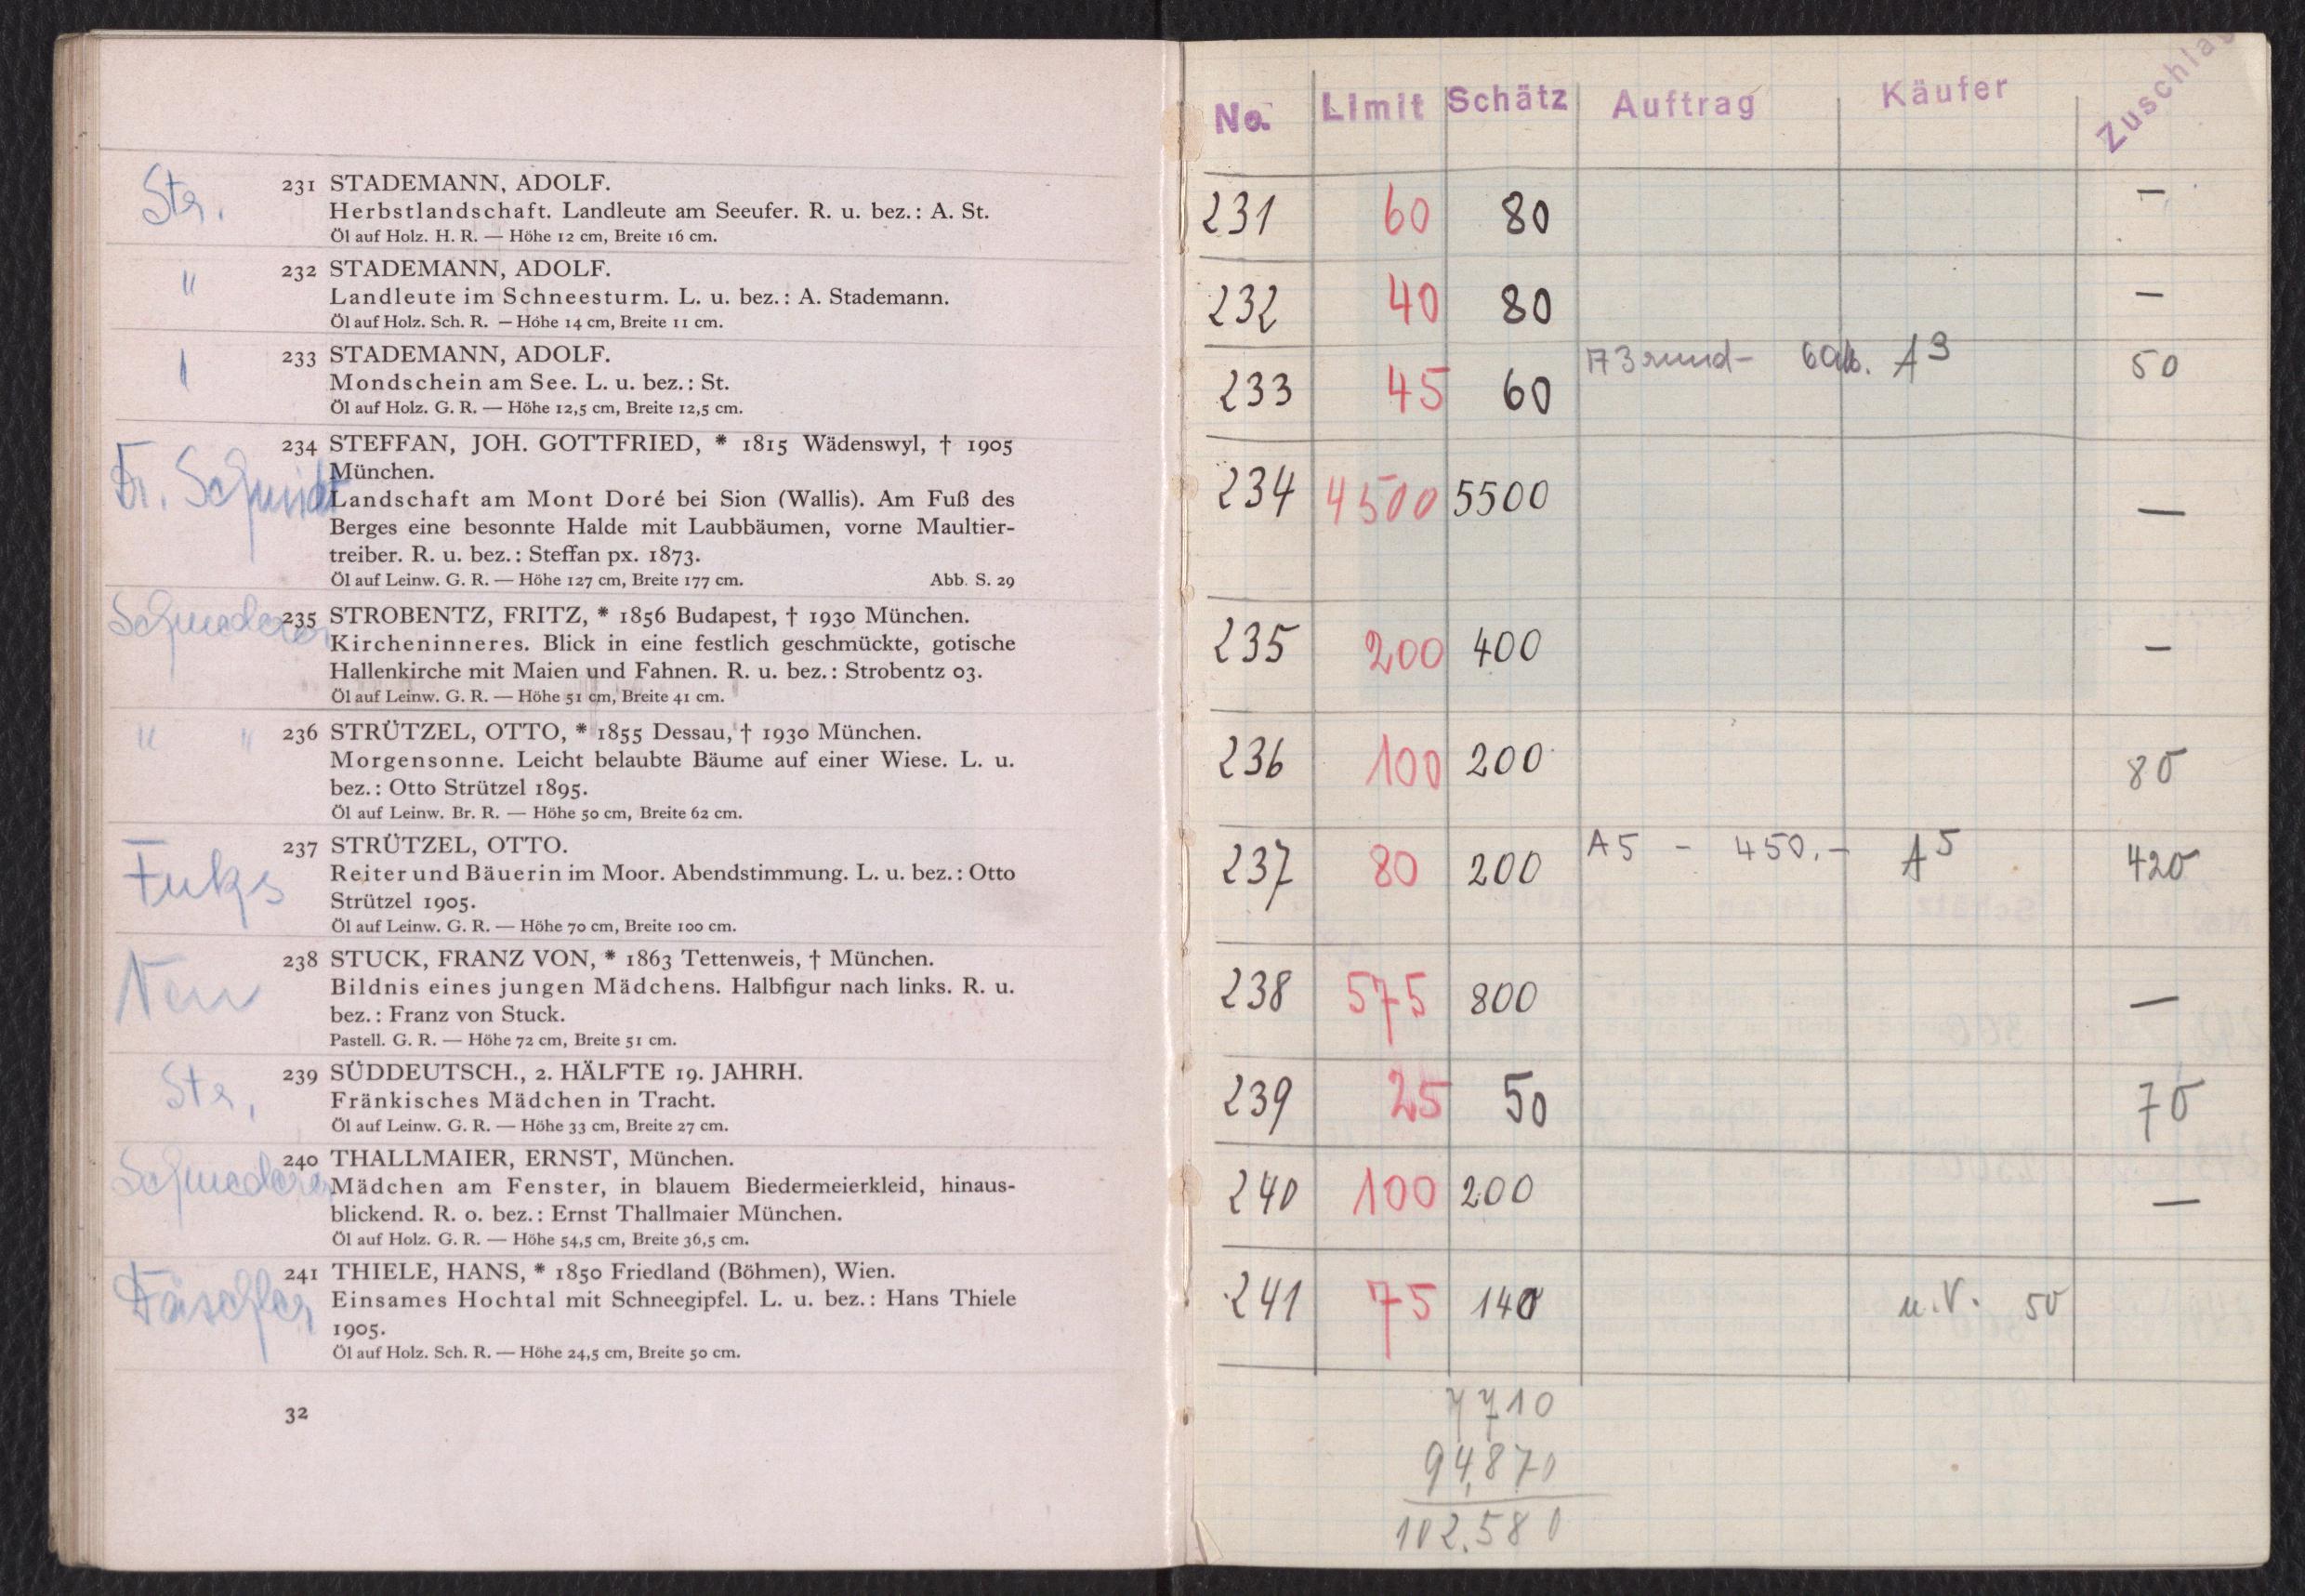 Str.
231 STADEMANN, ADOLF.
Herbstlandschaft. Landleute am Seeufer. R. u. bez.: A. St.
Öl auf Holz. H. R. — Höhe 12 cm, Breite 16 cm.
"
232 STADEMANN, ADOLF.
Landleute im Schneesturm. L. u. bez.: A. Stademann.
Öl auf Holz. Sch. R. — Höhe 14 cm, Breite 11 cm.
233 STADEMANN, ADOLF.
Mondschein am See. L. u. bez.: St.
Öl auf Holz. G. R. — Höhe 12,5 cm, Breite 12,5 cm.
Schmidt
234 STEFFAN, JOH. GOTTFRIED, * 1815 Wädenswyl, † 1905
München.
Landschaft am Mont Doré bei Sion (Wallis). Am Fuß des
Berges eine besonnte Halde mit Laubbäumen, vorne Maultier-
treiber. R. u. bez.: Steffan px. 1873.
Öl auf Leinw. G. R. — Höhe 127 cm, Breite 177 cm. Abb. S. 29
Schmederer
235 STROBENTZ, FRITZ, * 1856 Budapest, † 1930 München.
Kircheninneres. Blick in eine festlich geschmückte, gotische
Hallenkirche mit Maien und Fahnen. R. u. bez.: Strobentz 03.
Öl auf Leinw. G. R. — Höhe 51 cm, Breite 41 cm.
" "
236 STRÜTZEL, OTTO, * 1855 Dessau, † 1930 München.
Morgensonne. Leicht belaubte Bäume auf einer Wiese. L. u.
bez.: Otto Strützel 1895.
Öl auf Leinw. Br. R. — Höhe 50 cm, Breite 62 cm.
Fuhs
237 STRÜTZEL, OTTO.
Reiter und Bäuerin im Moor. Abendstimmung. L. u. bez.: Otto
Strützel 1905.
Öl auf Leinw. G. R. — Höhe 70 cm, Breite 100 cm.
238 STUCK, FRANZ VON, * 1863 Tettenweis, † München.
Bildnis eines jungen Mädchens. Halbfigur nach links. R. u.
bez.: Franz von Stuck.
Pastell. G. R. — Höhe 72 cm, Breite 51 cm.
Str.
239 SÜDDEUTSCH., 2. HÄLFTE 19. JAHRH.
Fränkisches Mädchen in Tracht.
Öl auf Leinw. G. R. — Höhe 33 cm, Breite 27 cm.
Schmederer
240 THALLMAIER, ERNST, München.
Mädchen am Fenster, in blauem Biedermeierkleid, hinaus-
blickend. R. o. bez.: Ernst Thallmaier München.
Öl auf Holz. G. R. — Höhe 54,5 cm, Breite 36,5 cm.
241 THIELE, HANS, * 1850 Friedland (Böhmen), Wien.
Einsames Hochtal mit Schneegipfel. L. u. bez.: Hans Thiele
1905.
Öl auf Holz. Sch. R. — Höhe 24,5 cm, Breite 50 cm.
32
No. Limit Schätz Auftrag Käufer Zuschlag
231 60 80 —
232 40 80 —
233 45 60 A3 50
234 4500 5500 —
235 200 400 —
236 100 200 80
237 80 200 A5 - 450.- A5 420
238 575 800 —
239 25 50 70
240 100 200 —
241 75 140 u.V. 50
7710
94,870
102.580